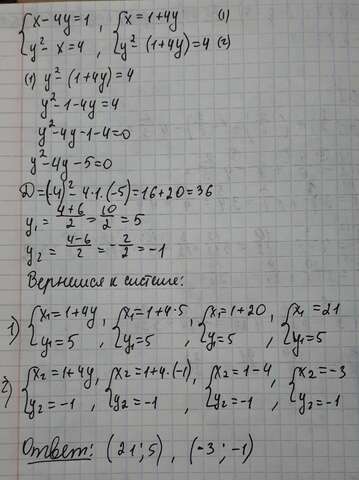 {x-4y=1 , {x=1+4y (1)
{y²-x=4 , {y²-(1+4y)=4 (2)
(1) y²-(1+4y)=4
y²-1-4y=4
y²-4y-1-4=0
y²-4y-5=0
D=(-4)²-4·1·(-5)=16+20=36
y₁=(4+6)/2=10/2=5
y₂=(4-6)/2=-2/2=-1
Вернемся к системе:
1) {x₁=1+4y, {x₁=1+4·5, {x₁=1+20, {x₁=21
{y₁=5 , {y₁=5 , {y₁=5 , {y₁=5
2) {x₂=1+4y, {x₂=1+4·(-1), {x₂=1-4, {x₂=-3
{y₂=-1 , {y₂=-1 , {y₂=-1 , {y₂=-1
Ответ: (21;5), (-3;-1)